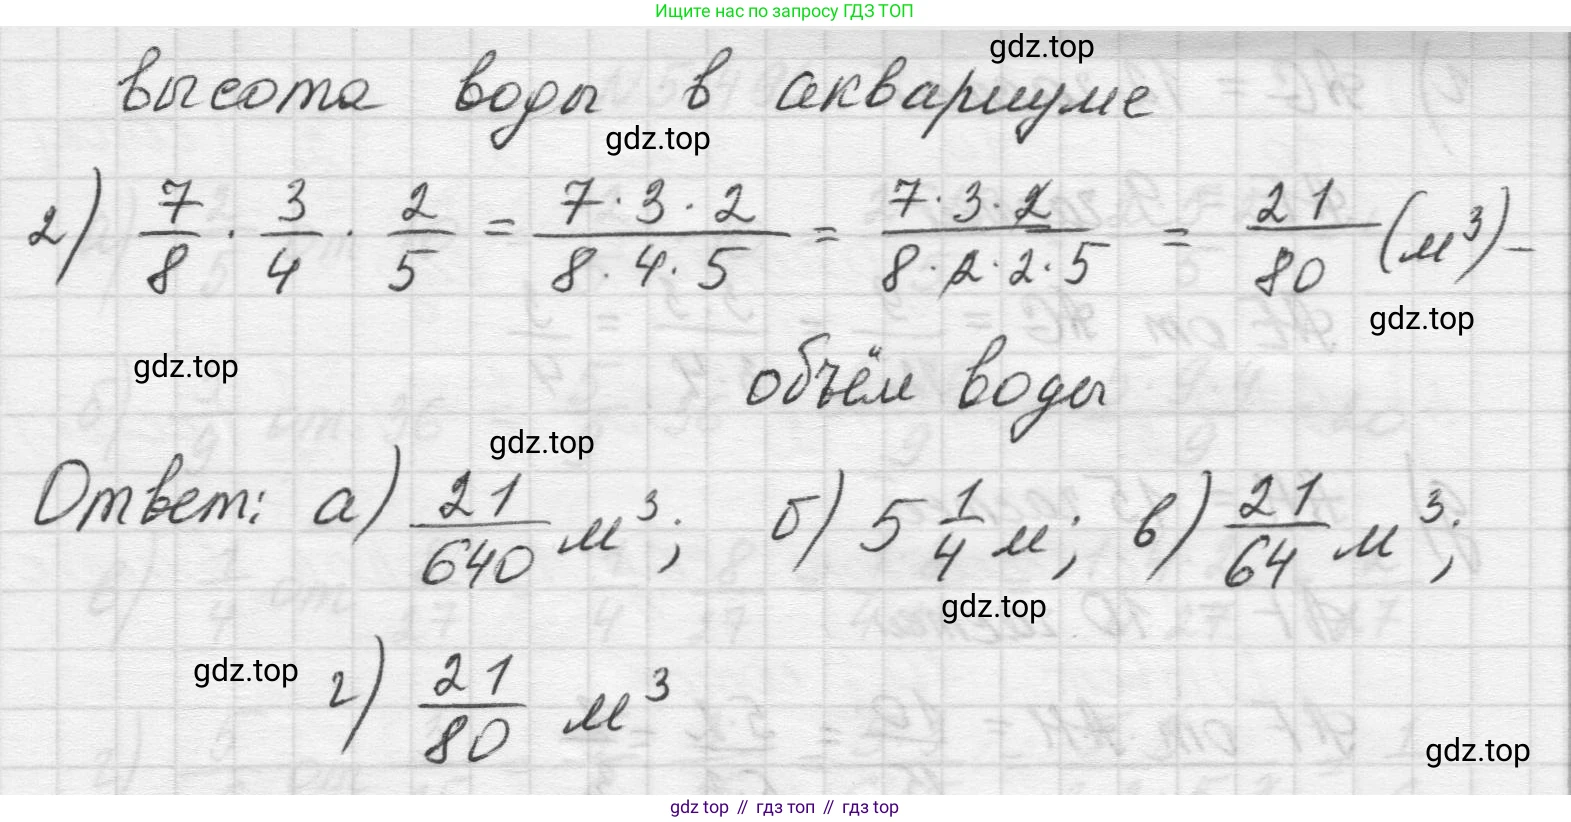 Ищите нас по запросу ГДЗ ТОП
gdz.top
высота воды в аквариуме
gdz.top
2) 7/8 · 3/4 · 2/5 = 7·3·2/8·4·5 = 7·3·2/8·2·2·5 = 21/80 (м³) –
gdz.top
объём воды
gdz.top
gdz.top
Ответ: а) 21/640 м³; б) 5 1/4 м; в) 21/64 м³;
gdz.top
gdz.top
г) 21/80 м³
gdz.top
gdz top // гдз топ // гдз top